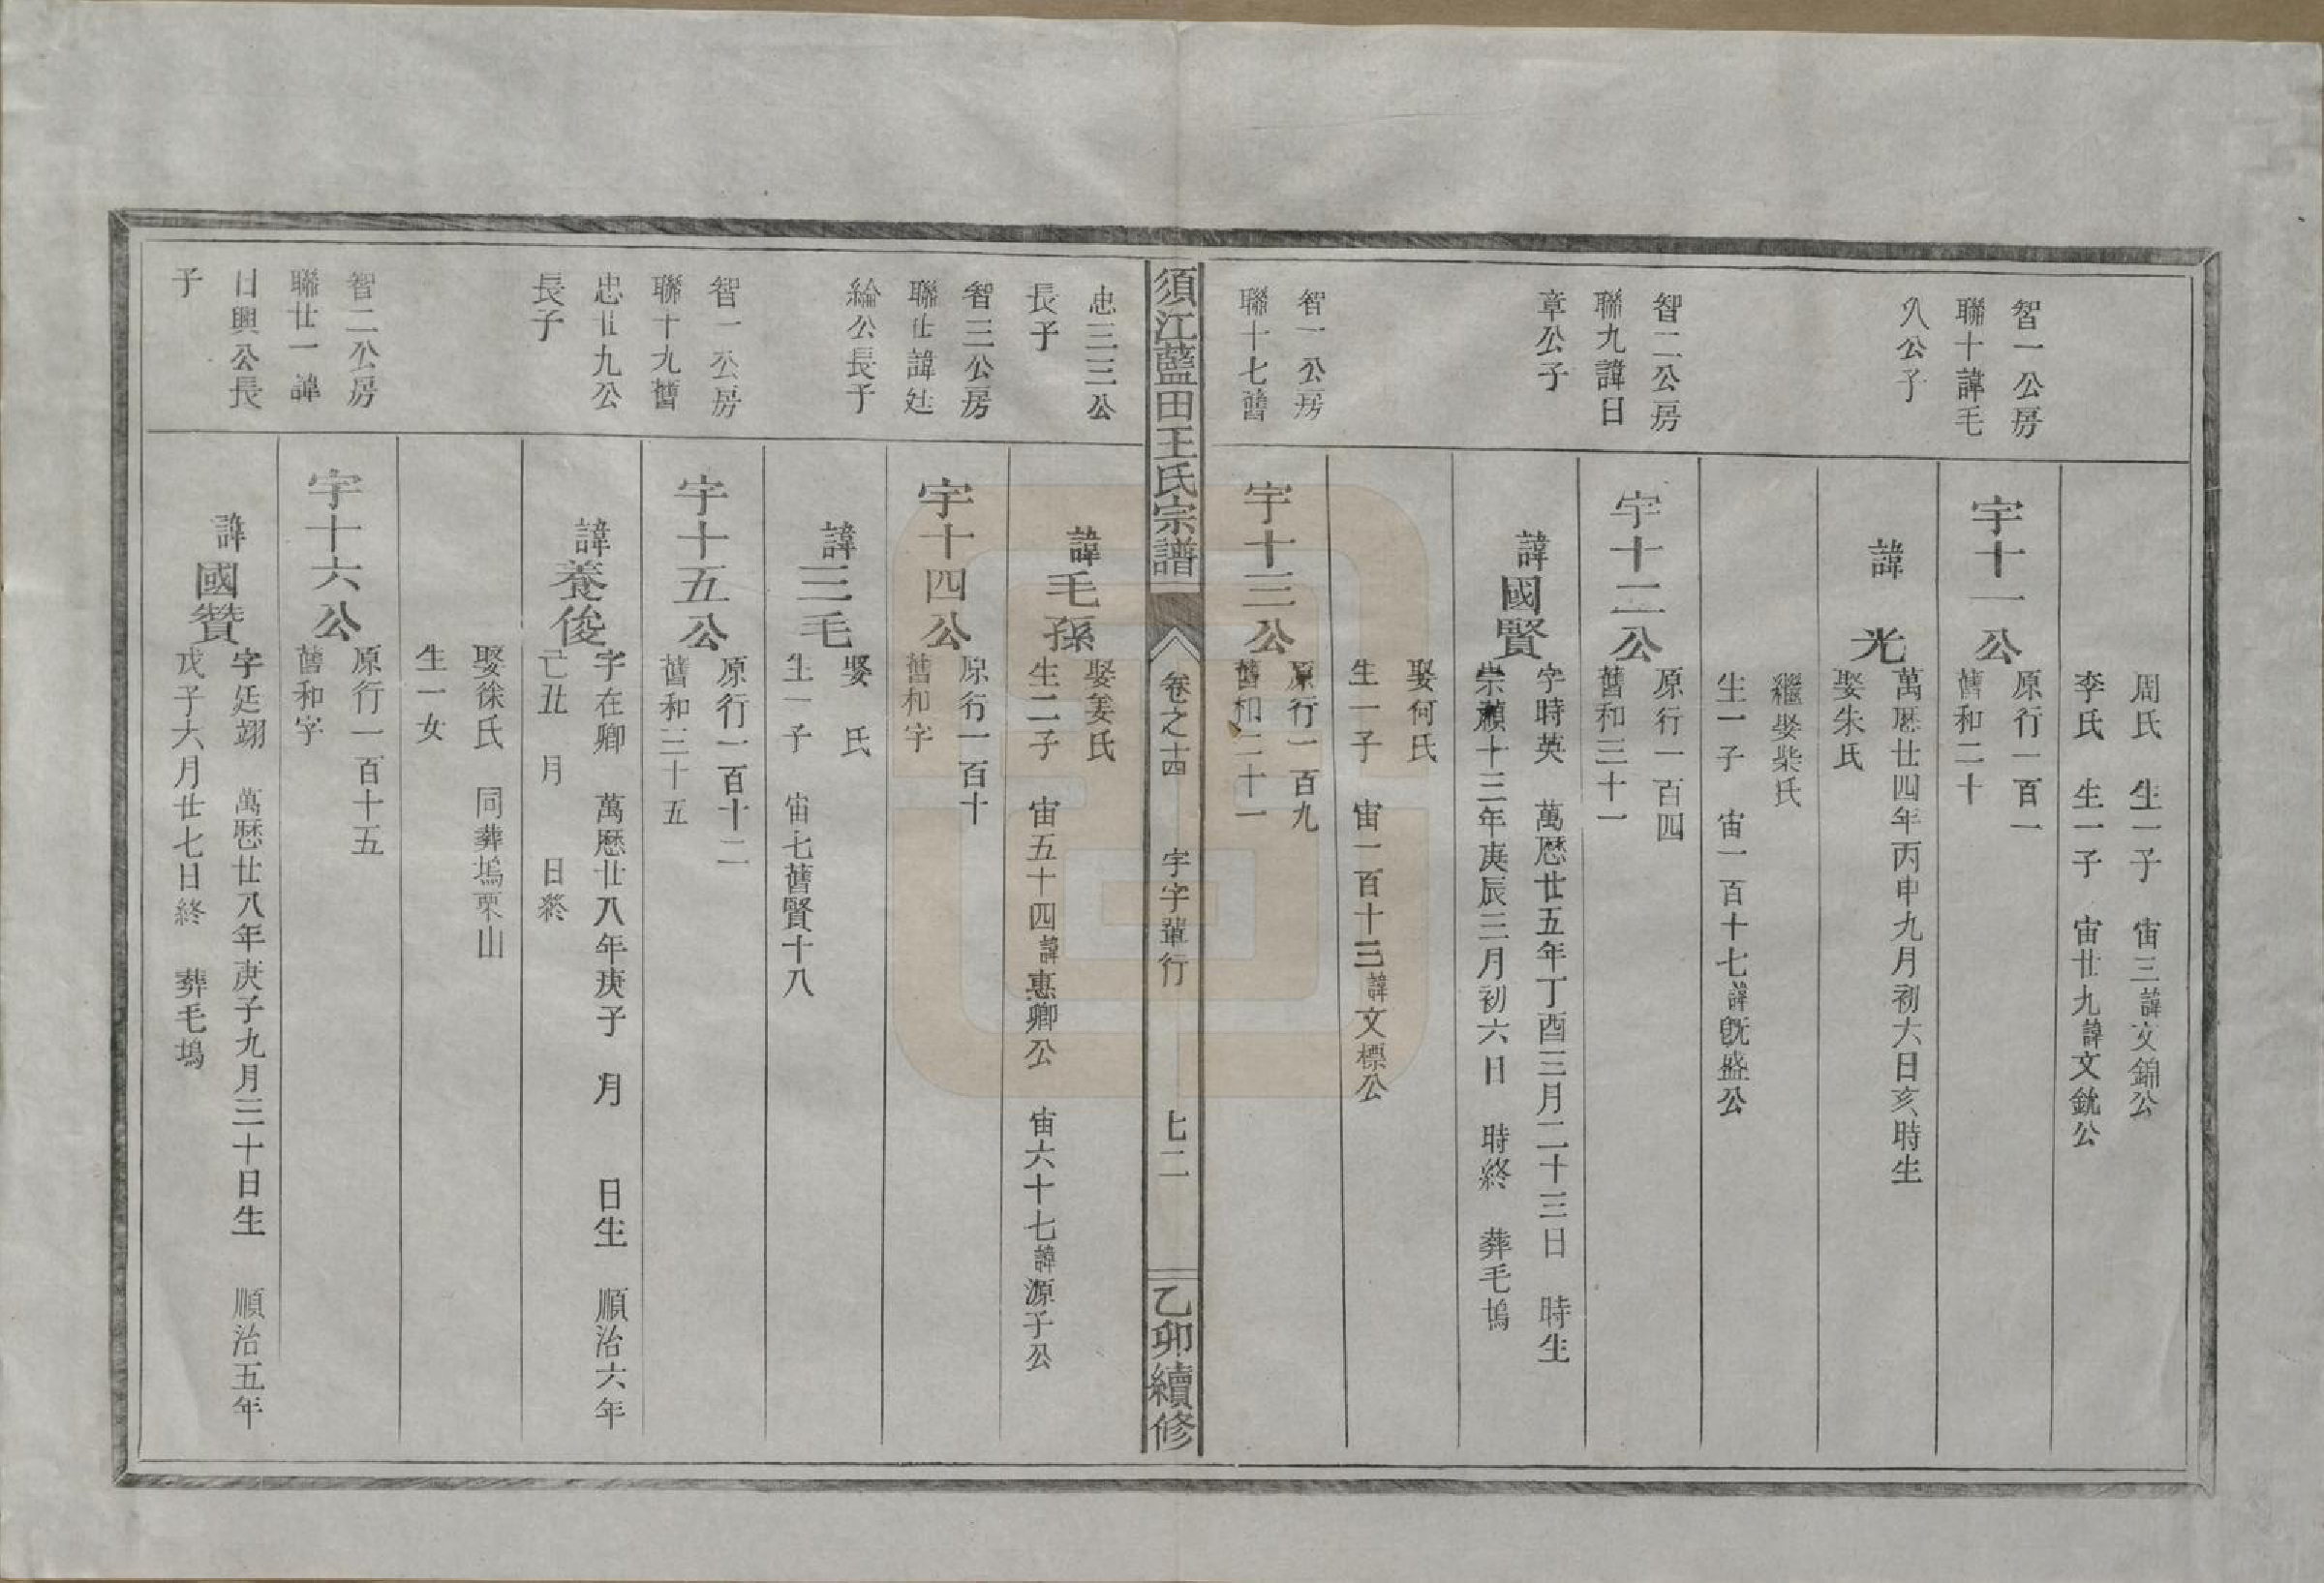 周氏　生一子　宙三諱文錦公
李氏　生一子　宙廿九諱文銃公
智一公房
聯十諱毛
宇十一公
原行一百一
舊和二十
久公子
諱　光
萬歷廿四年丙申九月初六日亥時生
娶朱氏
繼娶柴氏
生一子　宙一百十七諱旣盛公
智二公房
聯九諱日
宇十二公
原行一百四
舊和三十一
章公子
諱國賢
字時英　萬歷廿五年丁酉三月二十三日　時生
崇禎十三年庚辰三月初六日　時終　葬毛塢
娶何氏
生一子　宙一百十三諱文標公
智一公房
聯十七舊
宇十三公
原行一百九
舊和二十一
須江藍田王氏宗譜
卷之十四　宇字輩行　七二
乙卯續修
忠三三公
長子
諱毛孫
娶姜氏
生二子　宙五十四諱惠卿公　宙六十七諱源子公
智三公房
聯仕諱廷
宇十四公
原行一百十
舊和字
綸公長子
諱三毛
娶　氏
生一子　宙七舊賢十八
智一公房
聯十九舊
宇十五公
原行一百十二
舊和三十五
忠廿九公
長子
諱養俊
字在卿　萬歷廿八年庚子　月　日生　順治六年
己丑　月　日終
娶徐氏　同葬塢栗山
生一女
智二公房
聯廿一諱
宇十六公
原行一百十五
舊和字
日興公長
子
諱國贊
字廷翊　萬歷廿八年庚子九月三十日生　順治五年
戊子六月廿七日終　葬毛塢